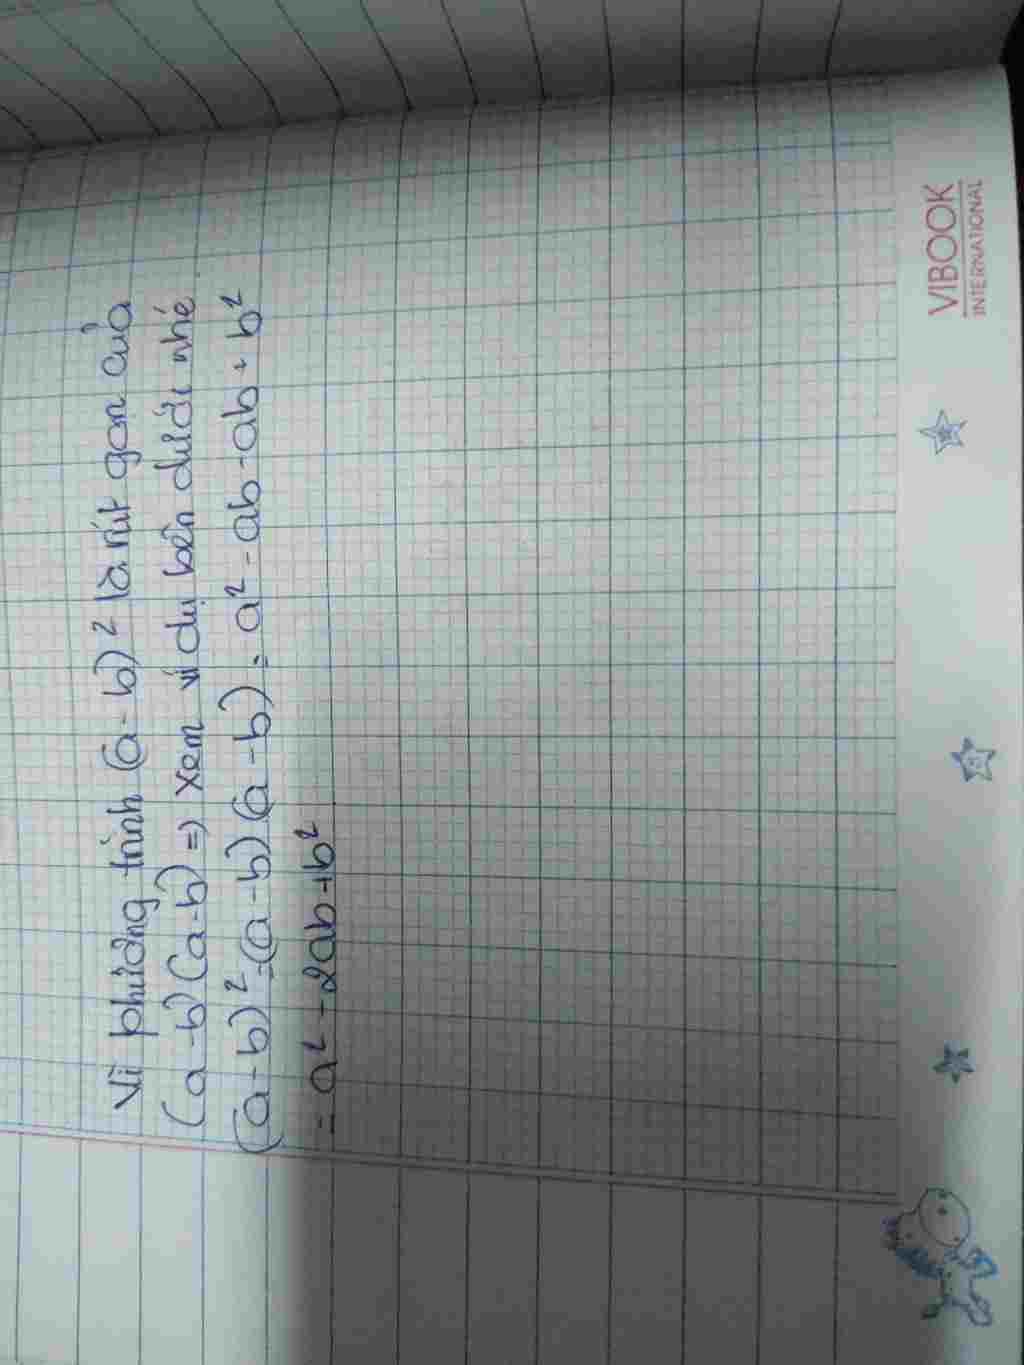 Vì phương trình (a-b)² là rút gọn của
(a-b)(a-b) => xem ví dụ bên dưới nhé
(a-b)² = (a-b)(a-b) = a² - ab - ab + b²
= a² - 2ab + b²
VIBOOK
INTERNATIONAL